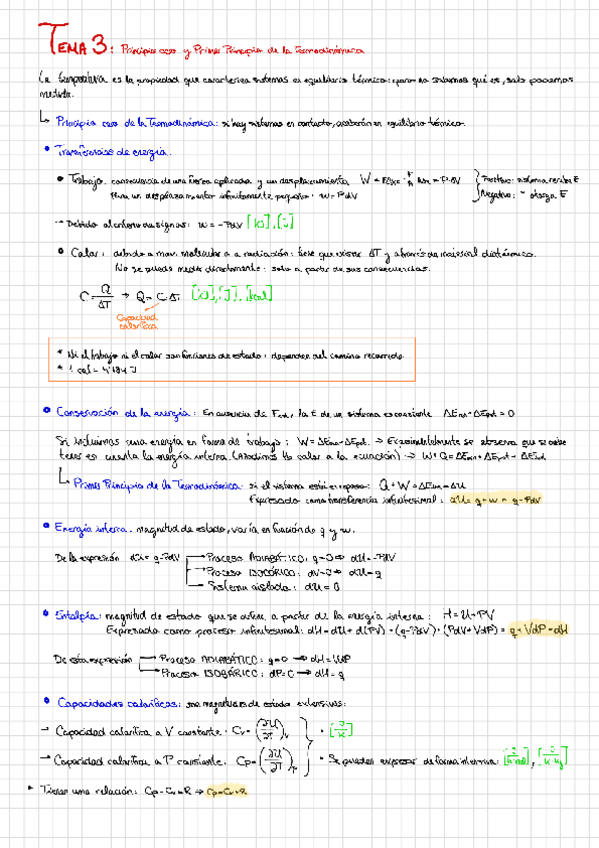 TEMA 3: Principio cero y Primer Principio de la Termodinámica
La temperatura es la propiedad que caracteriza sistemas en equilibrio térmico; pero no sabemos qué es, solo podemos
medirla.
↳ Principio cero de la Termodinámica: si hay sistemas en contacto, acabarán en equilibrio térmico.
• Transferencias de energía.
• Trabajo: consecuencia de una fuerza aplicada y un desplazamiento W = F·Δx = P·ΔV Positivo: sistema recibe E
Para un desplazamiento infinitamente pequeño: w = PdV Negativo: " otorga E
→ Debido al criterio de signos: w = -PdV [kJ], [J]
• Calor: debido a mov. molecular o a radiación: tiene que existir ΔT y a través de material diatérmico.
No se puede medir directamente: solo a partir de sus consecuencias.
C = Q/ΔT → Q = C·ΔT [kJ], [J], [kcal]
Capacidad
calorífica
* Ni el trabajo ni el calor son funciones de estado: dependen del camino recorrido
* 1 cal = 4'184 J
• Conservación de la energía: En ausencia de Fext, la E de un sistema es constante ΔEcin + ΔEpot = 0
Si incluimos una energía en forma de trabajo: W = ΔEcin + ΔEpot. → Experimentalmente se observa que se debe
tener en cuenta la energía interna. (Añadimos el calor a la ecuación) → W + Q = ΔEcin + ΔEpot + ΔEint
↳ Primer Principio de la Termodinámica: si el sistema está en reposo: Q + W = ΔEint = ΔU
Expresado como transferencia infinitesimal: dU = q + w = q - PdV
• Energía interna: magnitud de estado, varía en función de q y w.
De la expresión dU = q - PdV → Proceso ADIABÁTICO: q = 0 ⇒ dU = -PdV
→ Proceso ISOCÓRICO: dV = 0 ⇒ dU = q
→ Sistema aislado: dU = 0
• Entalpía: magnitud de estado que se define a partir de la energía interna: H = U + PV
Expresado como proceso infinitesimal: dH = dU + d(PV) = (q - PdV) + (PdV + VdP) = q + VdP = dH
De esta expresión → Proceso ADIABÁTICO: q = 0 ⇒ dH = VdP
→ Proceso ISOBÁRICO: dP = 0 ⇒ dH = q
• Capacidades caloríficas: son magnitudes de estado extensivas:
→ Capacidad calorífica a V constante: Cv = (∂U/∂T)v • [J/K]
→ Capacidad calorífica a P constante: Cp = (∂U/∂T)p • Se pueden expresar de forma intensiva: [J/K·mol], [J/K·kg]
▸ Tienen una relación: Cp - Cv = R ⇒ Cp = Cv + R